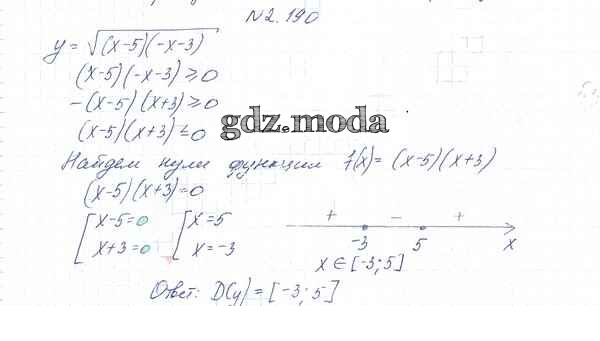 N2.190
y = √(x-5)(-x-3)
(x-5)(-x-3) ≥ 0
-(x-5)(x+3) ≥ 0
(x-5)(x+3) ≤ 0
gdz.moda
Найдем нули функции f(x) = (x-5)(x+3)
(x-5)(x+3)=0
[ x-5=0 [ x=5 + - +
x+3=0 x=-3 -3 5 x
x ∈ [-3; 5]
Ответ: D(y) = [-3; 5]